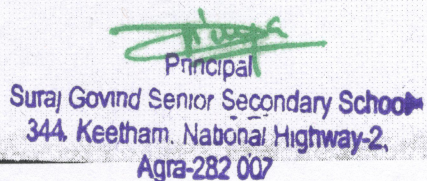 Principal
Suraj Govind Senior Secondary School
344, Keetham, National Highway-2,
Agra-282 007